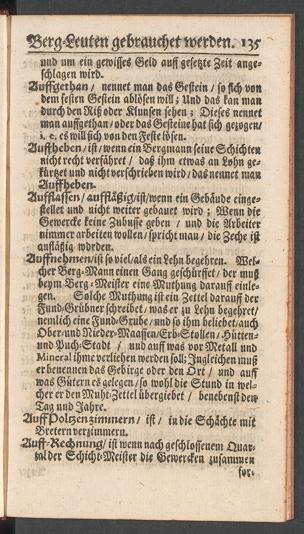 Berg-Leuten gebrauchet werden. 135
und um ein gewisses Geld auff gesetzte Zeit ange-
schlagen wird.
Auffgethan / nennet man das Gestein / so sich von
dem festen Gestein ablösen will; Und das kan man
durch den Riß oder Klunsen sehen; Dieses nennet
man auffgethan / oder das Gesteine hat sich gezogen/
i. e. es will sich von den Feste lösen.
Auffheben / ist / wenn ein Bergmann seine Schichten
nicht recht verfähret / daß ihm etwas an Lohn ge-
kürtzet und nicht verschrieben wird / das nennet man
Auffheben.
Aufflassen / aufläßig / ist / wenn ein Gebäude einge-
stellet und nicht weiter gebauet wird; Wenn die
Gewercke keine Zubusse geben / und die Arbeiter
nimmer arbeiten wollen / spricht man / die Zeche ist
aufläßig worden.
Auffnehmen / ist so viel / als ein Lehn begehren. Wel-
cher Berg-Mann einen Gang geschürffet / der muß
beym Berg-Meister eine Muthung darauff einle-
gen. Solche Muthung ist ein Zettel darauff der
Fund-Grübner schreibet / was er zu Lehn begehret /
nemlich eine Fund-Grube / und so ihm beliebet / auch
Ober- und Nieder-Maassen / Erb-Stollen / Hütten-
und Puch-Stadt / und auff was vor Metall und
Mineral ihme verliehen werden soll; Ingleichen muß
er benennen das Gebirge oder den Ort / und auff
was Gütern es gelegen / so wohl die Stund in wel-
cher er den Muht-Zettel übergiebet / benebenst dem
Tag und Jahre.
Auff Poltzen zimmern / ist / in die Schächte mit
Bretern verzimmern.
Auff-Rechnung / ist wenn nach geschlossenem Quar-
tal der Schicht-Meister die Gewercken zusammen
for-